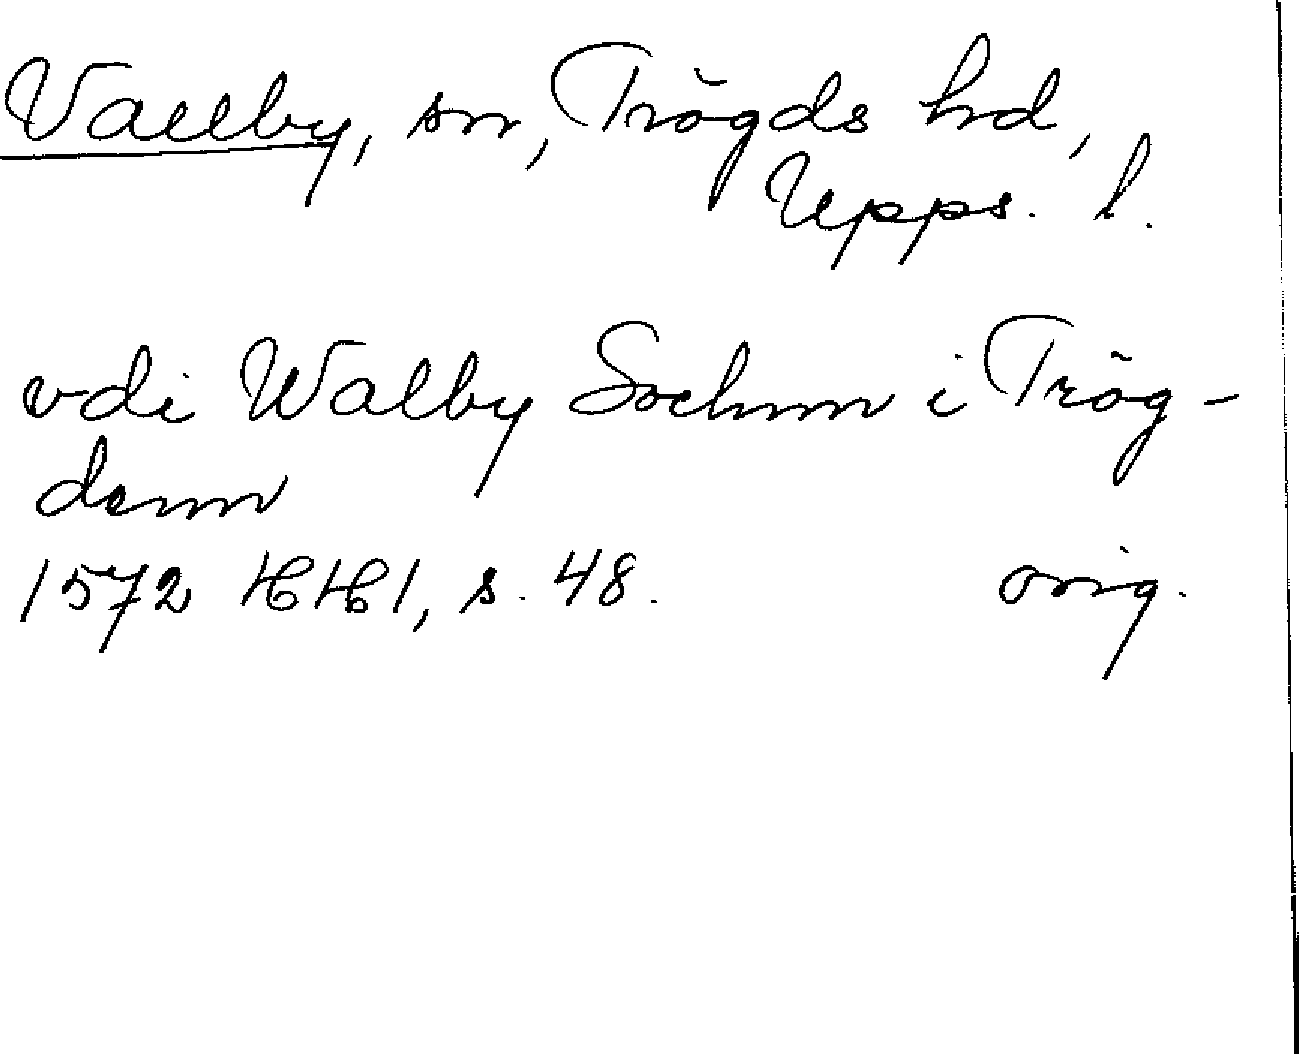 Vallby, sn, Trögds hd,
Upps. l.
vdi Walby Sochnn i Trög-
denn
1572 HH 1, s. 48. orig.